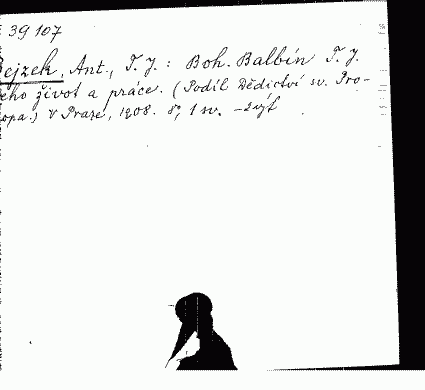 39107
ejzek, Ant., T. J. : Boh. Balbín T. J.
eho život a práce. (Podíl Dědictví sv. Pro-
opa.) V Praze, 1908. 8°, 1 sv. –